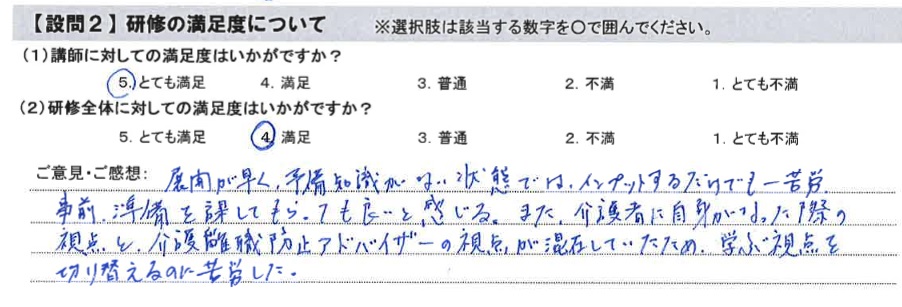 【設問2】研修の満足度について ※選択肢は該当する数字を○で囲んでください。
(1)講師に対しての満足度はいかがですか?
5. とても満足 4. 満足 3. 普通 2. 不満 1. とても不満
(2)研修全体に対しての満足度はいかがですか?
5. とても満足 4. 満足 3. 普通 2. 不満 1. とても不満
ご意見・ご感想: 展開が早く、予備知識がない状態では、インプットするだけでも一苦労。
事前、準備を課してもらっても良いと感じる。また、介護者に自身がなった際の
視点と、介護離職防止アドバイザーの視点が混在していたため、学ぶ視点を
切り替えるのに苦労した。